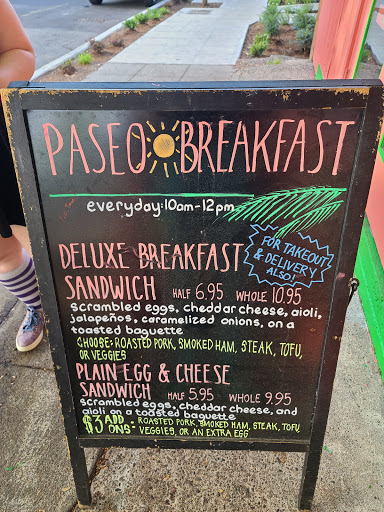 PASEO BREAKFAST
everyday: 10am-12pm
FOR TAKEOUT
& DELIVERY
ALSO!
DELUXE BREAKFAST
SANDWICH HALF 6.95 WHOLE 10.95
scrambled eggs, cheddar cheese, aioli,
jalapeños, caramelized onions, on a
toasted baguette
CHOOSE: ROASTED PORK, SMOKED HAM, STEAK, TOFU,
OR VEGGIES
PLAIN EGG & CHEESE
SANDWICH HALF 5.95 WHOLE 9.95
scrambled eggs, cheddar cheese, and
aioli on a toasted baguette
$3 ADD ONS: ROASTED PORK, SMOKED HAM, STEAK, TOFU,
VEGGIES, OR AN EXTRA EGG